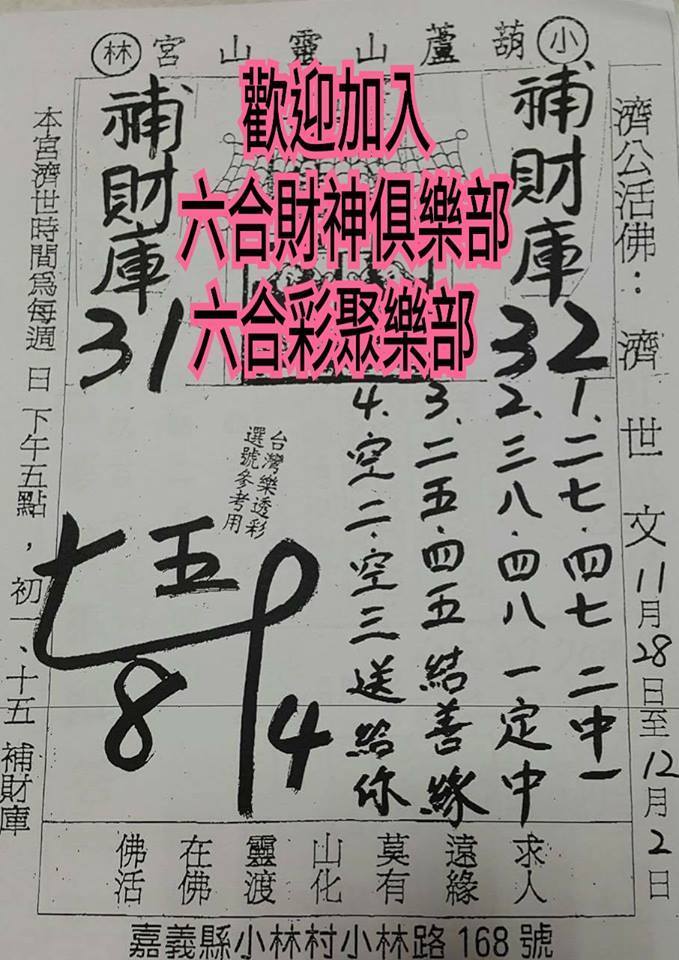 小 葫蘆山靈山宮 林
歡迎加入
六合財神俱樂部
六合彩聚樂部
濟公活佛：濟世文11月28日至12月2日
補財庫
32
補財庫
31
1、二七·四七 二中一
2、三八·四八 一定中
3、二五·四五 結善緣
4、空二·空三送給你
台灣樂透彩
選號參考用
七 五
8
4
本宮濟世時間為每週日下午五點，初一、十五補財庫
求人
遠緣
莫有
山化
靈渡
在佛
佛活
嘉義縣小林村小林路168號